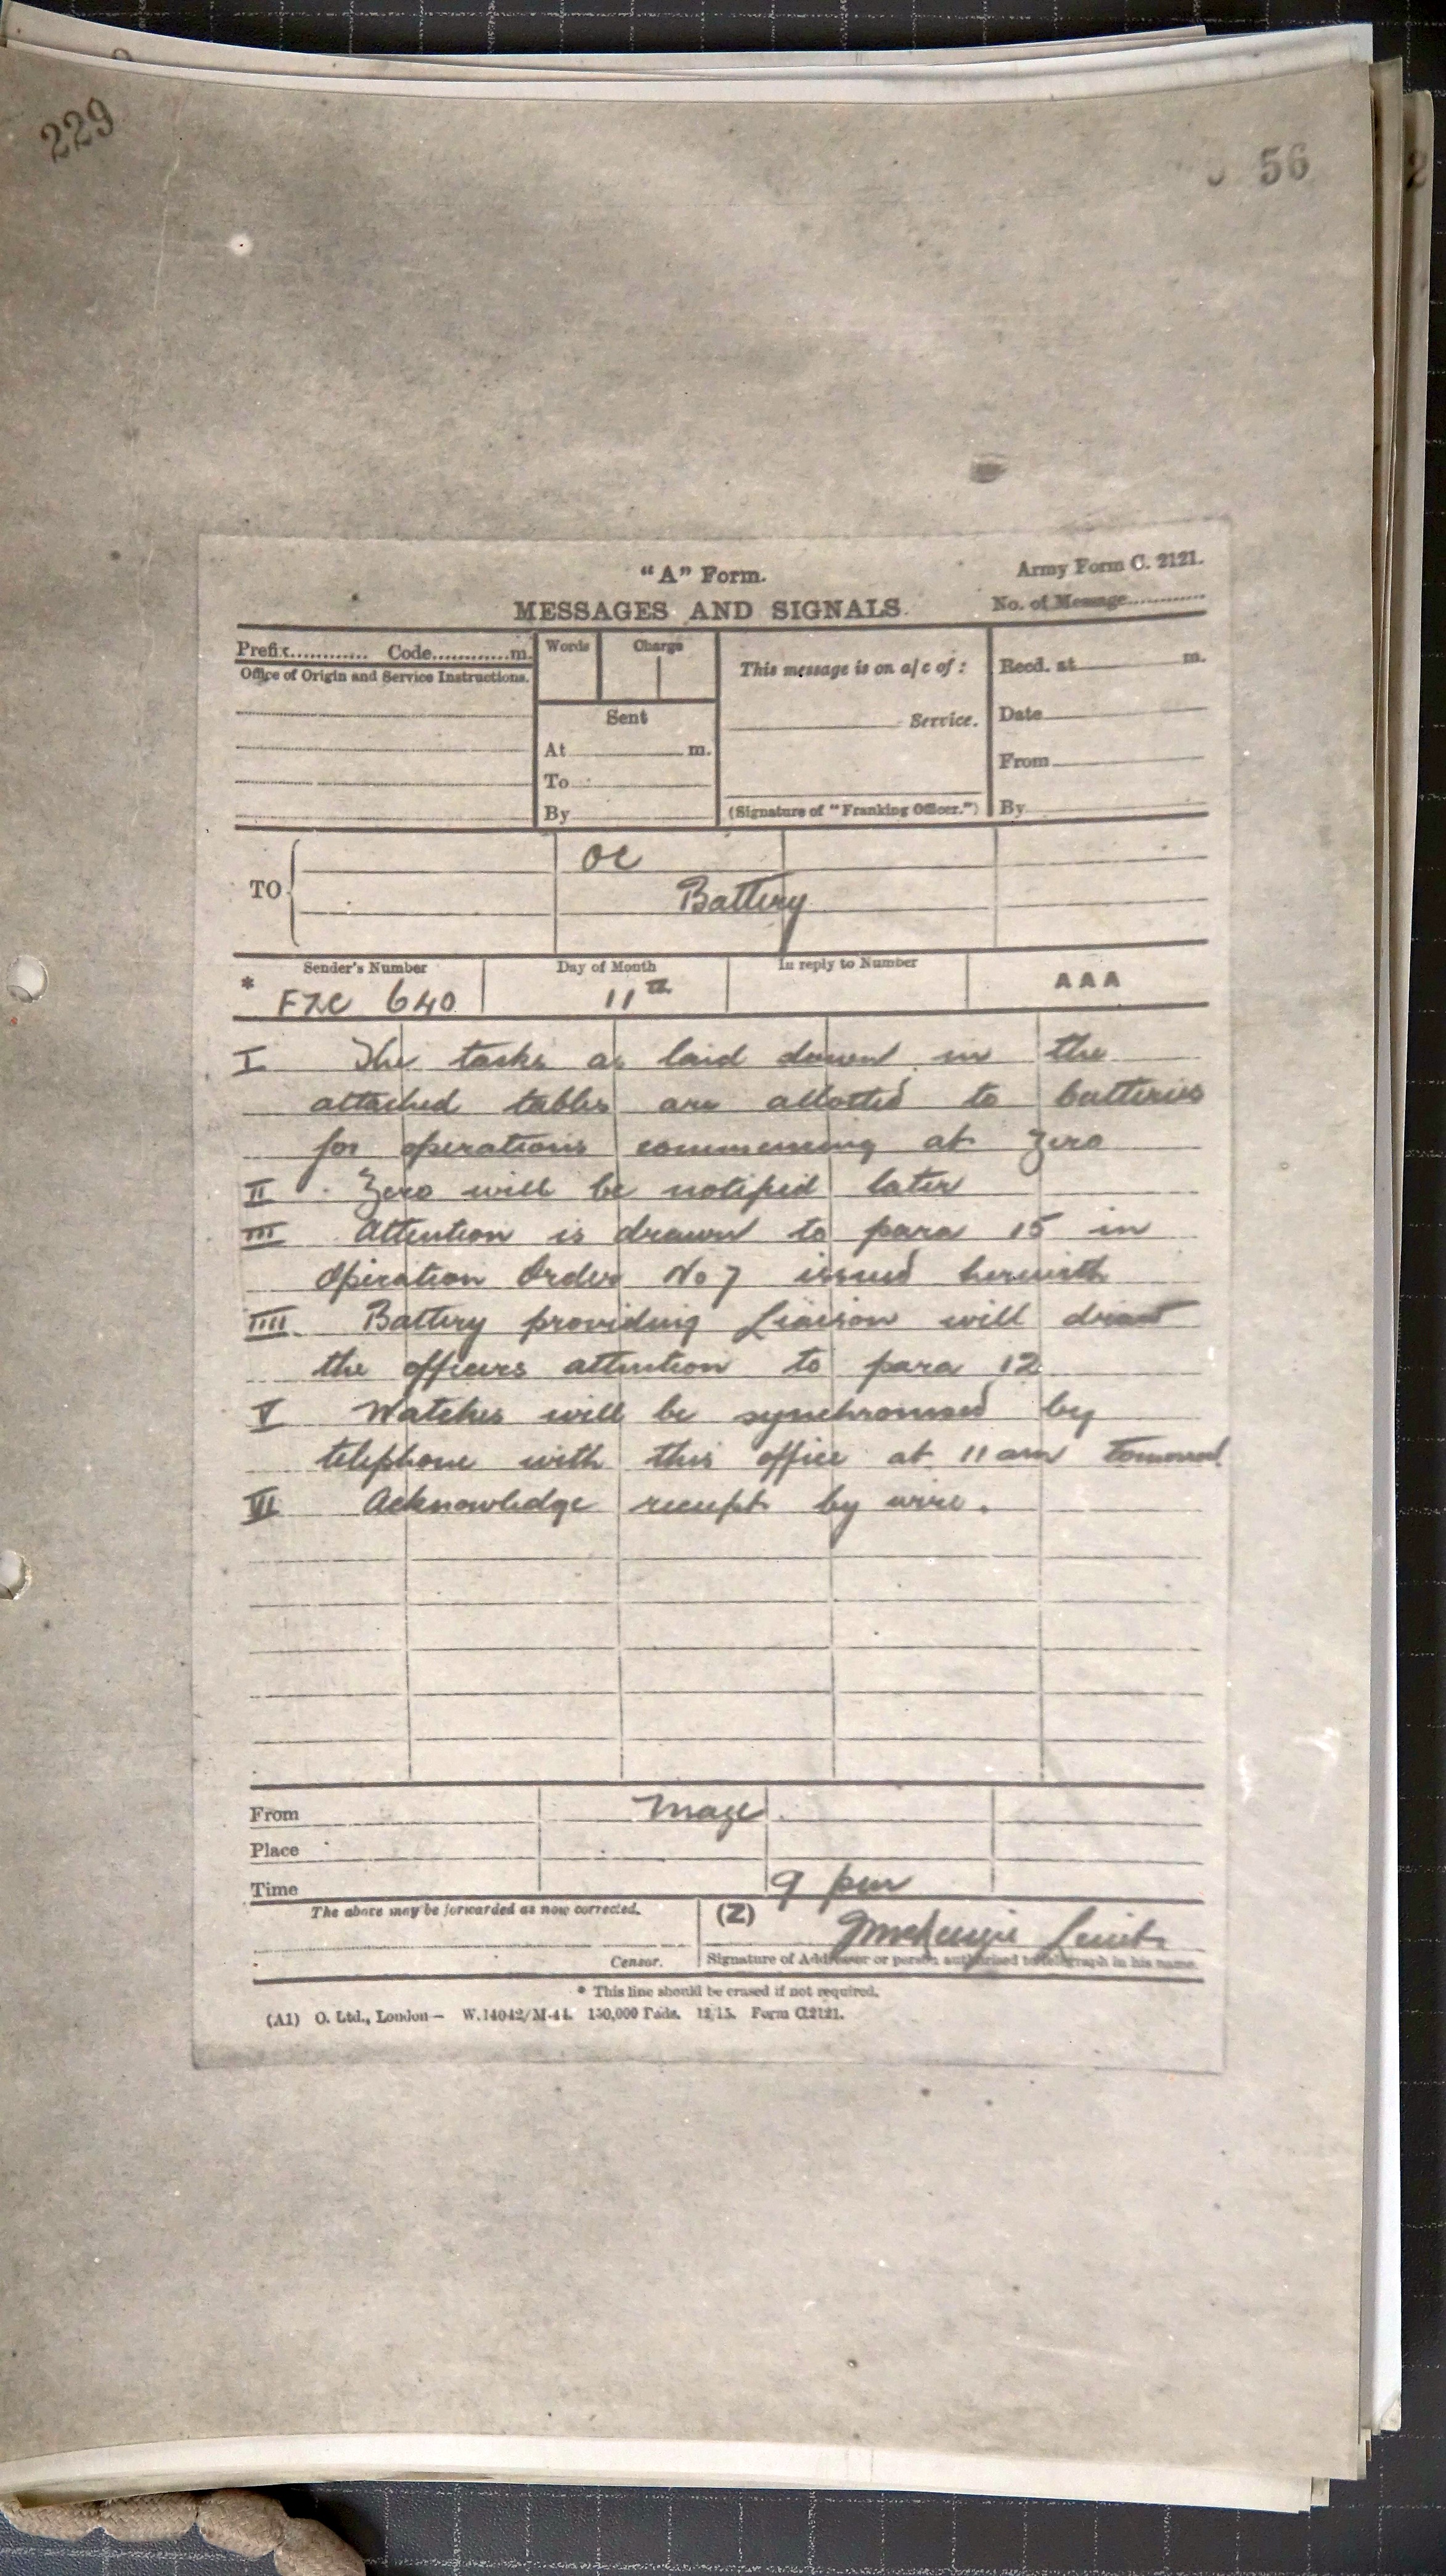 229
56
"A" Form.
Army Form C. 2121.
MESSAGES AND SIGNALS.
No. of Message............
Prefix............ Code............m.
Words
Charge
This message is on a/c of :
Recd. at m.
Office of Origin and Service Instructions.
Sent
Service.
Date
At m.
From
To
By
(Signature of "Franking Officer.")
By
TO
OC
Battery
Sender's Number
Day of Month
In reply to Number
AAA
* FZC 640
11th
I The tasks as laid down in the
attached tables are allotted to batteries
for operations commencing at Zero
II Zero will be notified later
III Attention is drawn to para 15 in
Operation Order No 7 issued herewith
IIII Battery providing Liaison will draw
the officers attention to para 12
V Watches will be synchronised by
telephone with this office at 11 am
VI Acknowledge receipt by wire.
From
Place
Time
9 pm
The above may be forwarded as now corrected.
(Z)
McKenzie Lieut
Censor.
Signature of Addressor or person authorised to telegraph in his name.
* This line should be erased if not required.
(A1) O. Ltd., London— W.14042/M-44. 150,000 Pads. 12/15. Form C.2121.